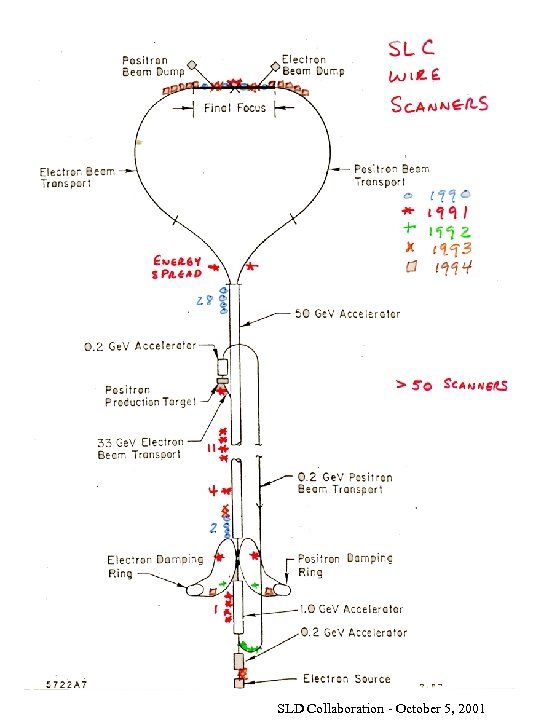 SLC
WIRE
SCANNERS
Positron
Beam Dump
Electron
Beam Dump
Final Focus
Electron Beam
Transport
Positron Beam
Transport
1990
1991
1992
1993
1994
ENERGY
SPREAD
28
50 GeV Accelerator
0.2 GeV Accelerator
Positron
Production Target
> 50 SCANNERS
33 GeV Electron
Beam Transport
11
4
0.2 GeV Positron
Beam Transport
2
Electron Damping
Ring
Positron Damping
Ring
1
1.0 GeV Accelerator
0.2 GeV Accelerator
Electron Source
5722A7
SLD Collaboration - October 5, 2001